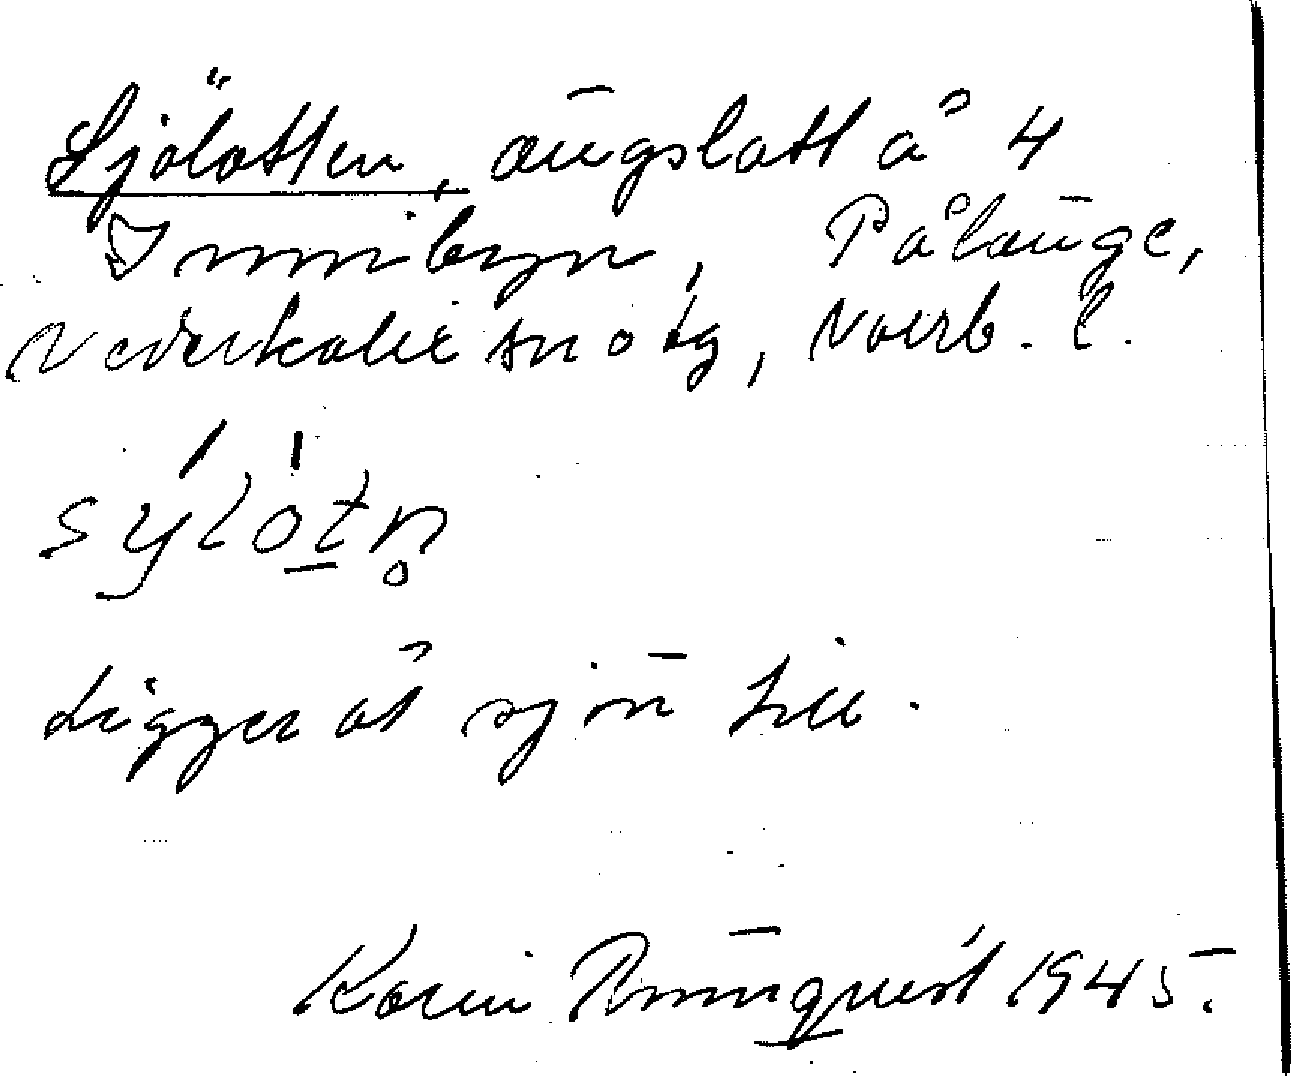 Sjölotten, ängslott å 4
Innibyn, Pålänge,
Nederkalix sn o tg, Norrb. l.
sýlòt̲n̥
Ligger åt sjön till.
Karin 1945.